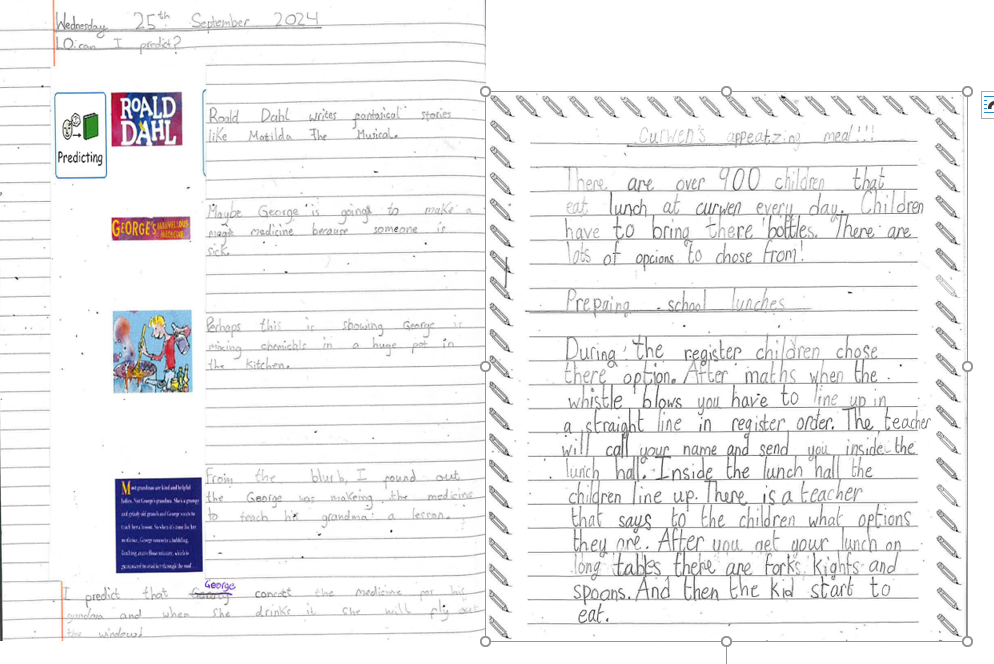 Wednesday 25th September 2024
LO: can I predict?
Predicting
ROALD
DAHL
Roald Dahl writes fantasical stories
like Matilda The Musical.
GEORGE'S MARVELLOUS
MEDICINE
Maybe George is going to make a
magic medicine because someone is
sick.
Perhaps this is showing George is
mixing chemichls in a huge pot in
the kitchen.
Most grandmas are kind and helpful
ladies. Not George's grandma. She's a grumpy
From the blurb, I found out
the George was makeing the medicine
to teach his grandma a lesson.
George
I predict that concott the medicine for his
grandma and when she drinks it she will fly out
the window!
Curwen's appeatzing meal!!!
There are over 900 children that
eat lunch at curwen every day. Children
have to bring there bottles. There are
lots of opcions to chose from!
Prepaing school lunches
During the register children chose
there option. After maths when the
whistle blows you have to line up in
a straight line in register order. The teacher
will call your name and send you inside the
lunch hall. Inside the lunch hall the
children line up. There is a teacher
that says to the children what options
they are. After you get your lunch on
long tables there are forks, kights and
spoons. And then the kid start to
eat.